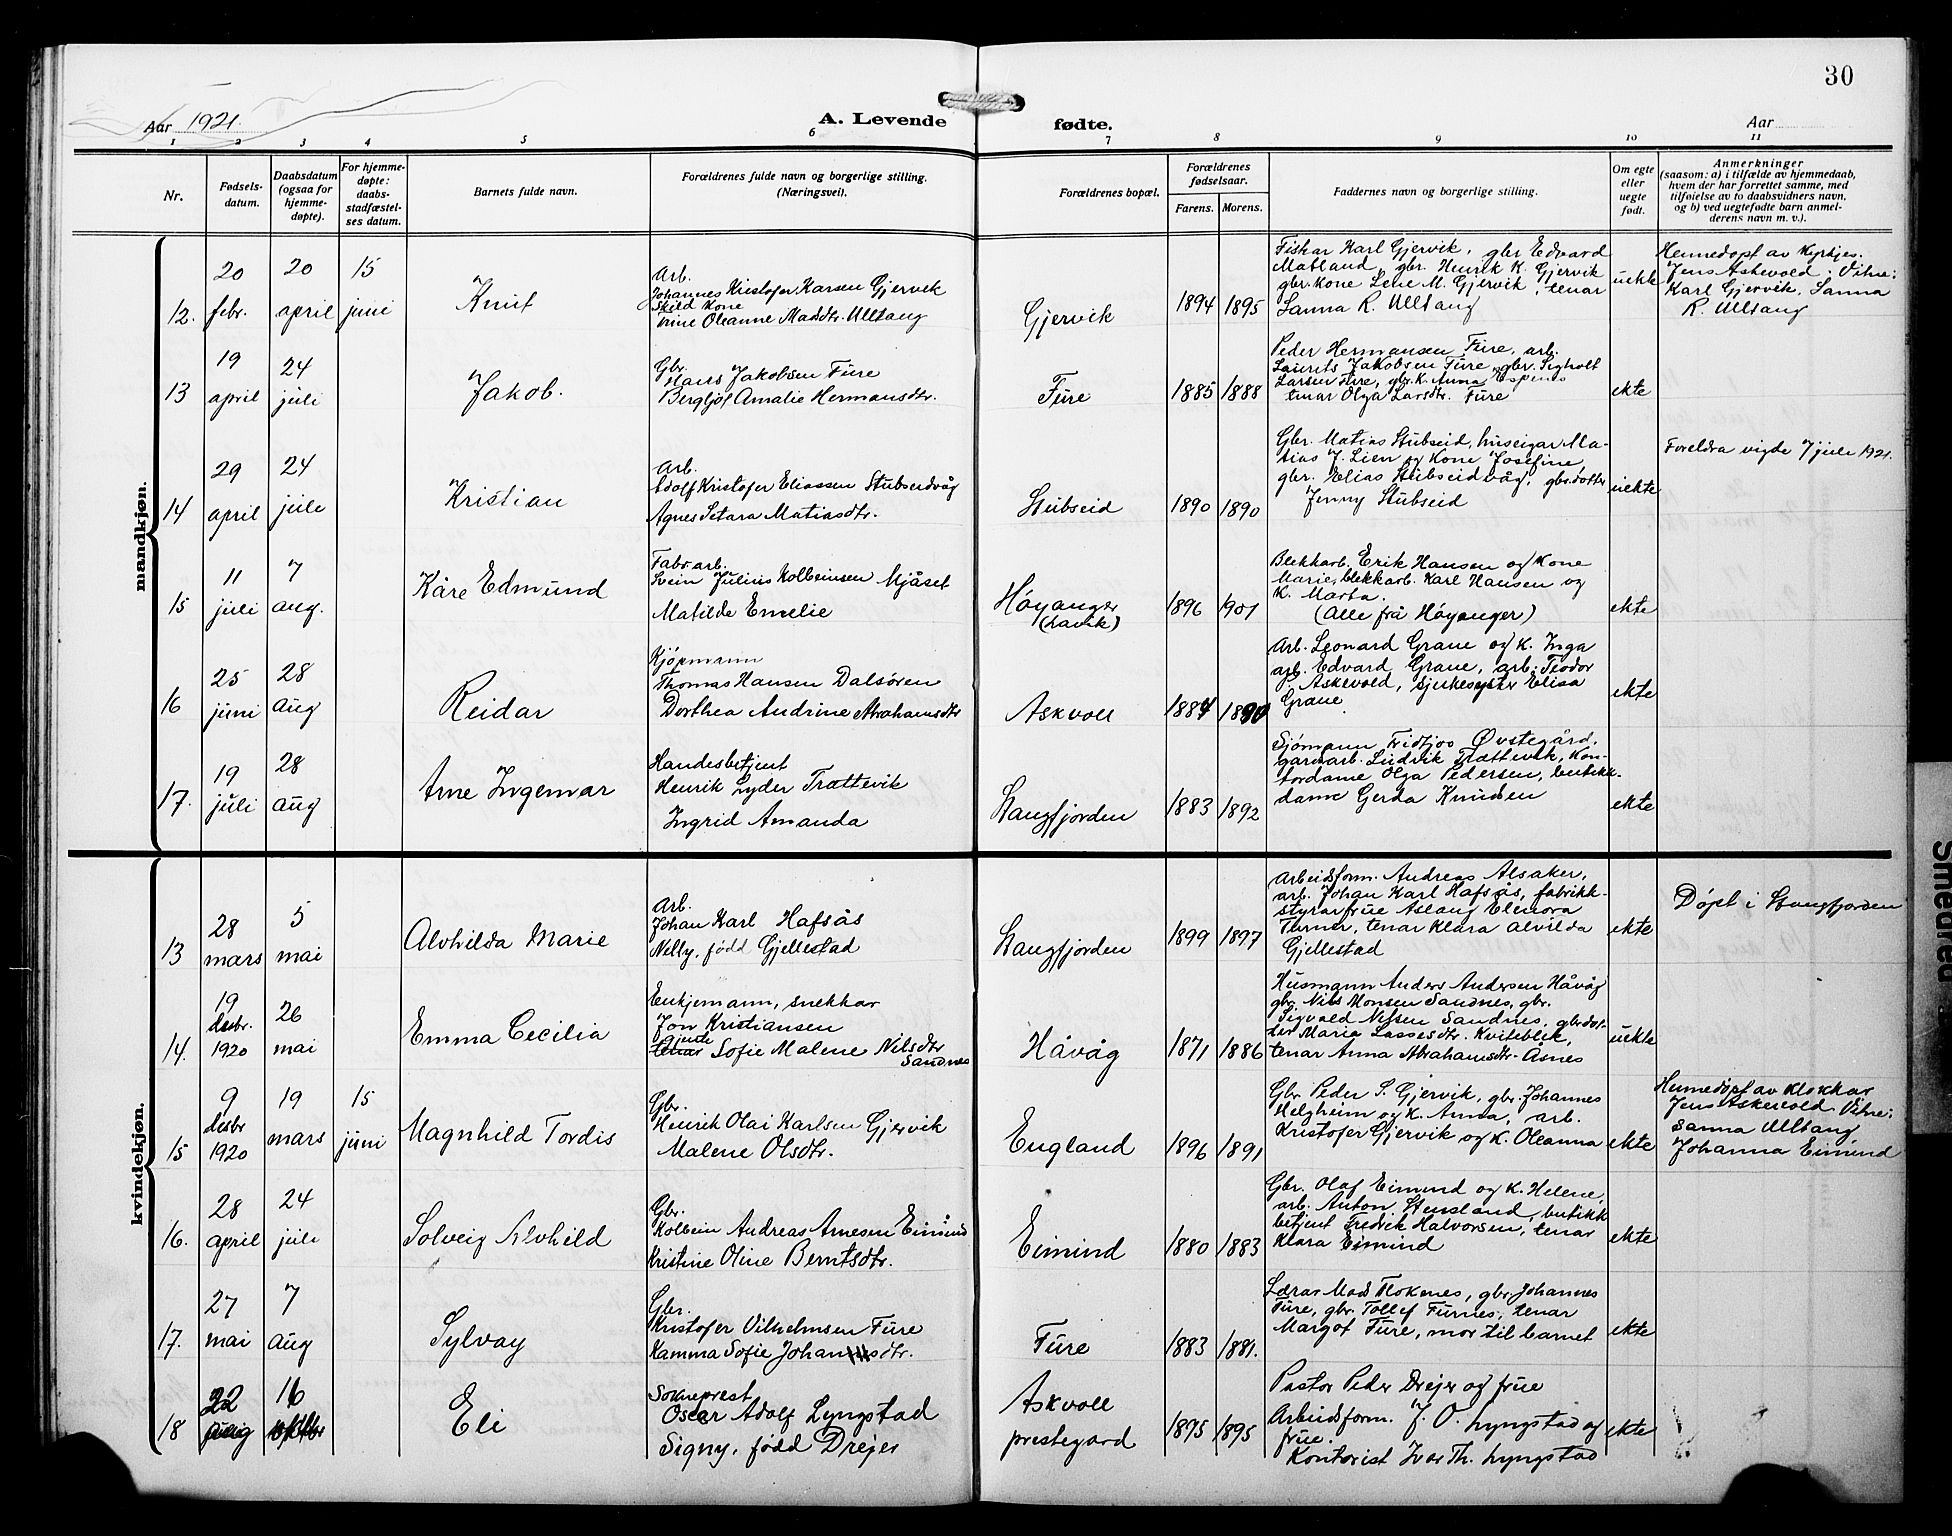 30
Aar 1921.
A. Levende fødte.
Aar
1 2 3 4 5 6 7 8 9 10 11
Nr.
Fødsels-
datum.
Daabsdatum
(ogsaa for
hjemme-
døpte).
For hjemme-
døpte:
daabs-
stadfæstel-
ses datum.
Barnets fulde navn.
Forældrenes fulde navn og borgerlige stilling.
(Næringsvei).
Forældrenes bopæl.
Forældrenes
fødselsaar.
Farens. Morens.
Faddernes navn og borgerlige stilling.
Om egte
eller
uegte
født.
Anmerkninger
(saasom: a) i tilfælde av hjemmedaab,
hvem der har forrettet samme, med
tilføielse av to daabsvidners navn,
og b) ved uegtefødte barn anmel-
derens navn m. v.).
mandkjøn.
12. 20 febr. 20 april 15 juni
Knut
Arb.
Johannes Kristofer Karsen Gjervik
Skild Kone
Trine Oleanne Madsdtr. Ulltang
Gjervik
1894 1895
Fiskar Karl Gjervik, gbr Edvard
Matland, gbr. Henrik K. Gjervik
gbr. Kone Lene M. Gjervik, tenar
Sanna R. Ulltang
uekte
Hemedøpt av Kyrkjes.
Jens Askevold. Vitne:
Karl Gjervik, Sanna
R. Ulltang
13 19 april 24 juli
Jakob.
Gbr.
Hans Jakobsen Fure
Bergljot Amalie Hermansdtr.
Fure
1885 1888
Peder Hermansen Fure, arb.
Laurits Jakobsen Fure, gbr. Sigholt
Larsen Fure, gbr. K. Anna Espenes
tenar Olga Larsdtr. Fure
ekte
14 29 april 24 jule
Kristian
Arb.
Adolf Kristofer Eliassen Stubseidvåg
Agnes Setara Matiasdtr.
Stubseid
1890 1890
Gbr. Matias Stubseid, huseigar Ma-
tias J. Lien og Kone Josefine,
gbr. Elias Stubseidvåg, gbr.dotter
Jenny Stubseid
uekte
Foreldra vigde 7 jule 1921.
15 11 juli 7 aug.
Kåre Edmund
Fabr. arb.
Svein Julius Kolbeinsen Mjåset
Matilde Emelie
Høyanger
(Lavik)
1896 1901
Blekkarb. Erik Hansen og Kone
Marie, blekkarb. Karl Hansen og
K. Marta.
(Alle frå Høyanger)
ekte
16 25 juni 28 aug
Reidar
Kjøpmann
Thomas Hansen Dalsøren
Dorthea Andrine Abrahamsdtr
Askvoll
1884 1890
Arb. Leonard Grane og K. Inga
arb. Edvard Grane, arb. Teodor
Askevold, sjukesyster Elisa
Grane
ekte
17. 19 juli 28 aug
Arne Ingemar
Handesbetjent
Henrik Lyder Trættevik
Ingrid Amanda
Stangfjorden
1883 1892
Sjømann Fridtjov Øvstegård,
gardarb. Ludvik Trættevik, Kon-
tordame Olga Pedersen, butikk-
dame Gerda Knudsen
ekte
kvindekjøn.
13 28 mars 5 mai
Alvhilda Marie
Arb.
Johan Karl Hafsås
Nelly, född Gjellestad
Stangfjorden
1899 1897
Arbeidsform. Andreas Alsaker,
arb. Johan Karl Hafsås, fabrikk-
styrarfrue Aslaug Elenora
Turner, tenar Klara Alvilda
Gjellestad
ekte
Døpt i Stangfjorden
14. 19 desbr. 1920 26 mai
Emma Cecilia
Enkjemann, snekkar
Jon Kristiansen
Gjente
tenar Sofie Malene Nilsdtr
Sandnes
Håvåg
1871 1886
Husmann Anders Andersen Håvåg
gbr. Nils Monsen Sandnes, gbr.
Sigvald Nilsen Sandnes, gbr.dot-
ter Maria Lassesdtr. Kviteblik,
tenar Anna Abrahamsdtr. Åsnes
uekte
15 9 desbr 1920 19 mars 15 juni
Magnhild Tordis
Gbr.
Henrik Olai Karlsen Gjervik
Malene Olsdtr.
England
1896 1891
Gbr. Peder S. Gjervik, gbr. Johannes
Helgheim og K. Anna, arb.
Kristofer Gjervik og K. Oleanna
ekte
Hemedøpt av Klokkar
Jens Askevold Vitne:
Sanna Ulltang
Johanna Eimind
16. 28 april 24 juli
Solveig Alvhild
Gbr.
Kolbein Andreas Arnesen Eimind
Kristine Oline Berntsdtr.
Eimind
1880 1883
Gbr. Olaf Eimind og K. Helene,
arb. Anton Stensland, butikk
betjent Fredrik Halvorsen, tenar
Klara Eimind
ekte
17. 27 mai 7 aug
Sylvay
Gbr.
Kristofer Vilhelmsen Fure
Kamma Sofie Johannesdtr.
Fure
1883 1881.
Lærar Mads Flokenes, gbr. Johannes
Fure, gbr. Tollef Furnes, tenar
Margot Fure, mor til barnet
ekte
18 22 aug 16 oktbr
Eli
Sokneprest
Oscar Adolf Lyngstad
Signy, född Drejer
Askvoll
prestegard
1895 1895
Pastor Peder Drejer og frue
Arbeidsform. J. O. Lyngstad og
frue.
Kontorist Ivar Th. Lyngstad
ekte
Smedred